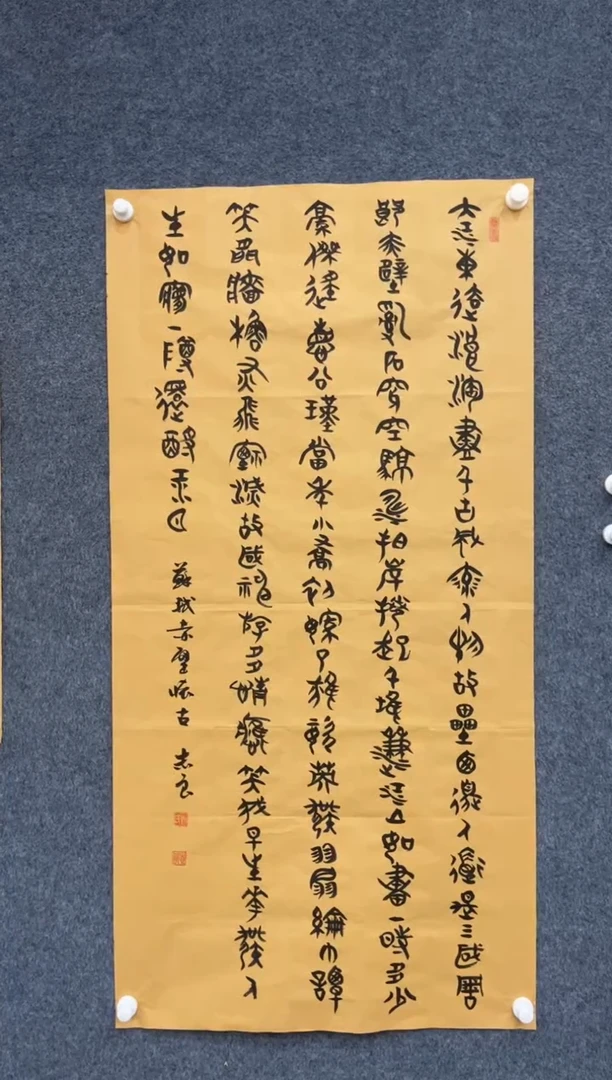 大江東去浪淘盡千古風流人物故壘西邊人道是三國周
郎赤壁亂石穿空驚濤拍岸捲起千堆雪江山如畫一時多少
豪傑遥想公瑾當年小喬初嫁了雄姿英發羽扇綸巾談
笑間檣櫓灰飛煙滅故國神游多情應笑我早生華髮人
生如夢一尊還酹江月 蘇軾赤壁懷古 志良